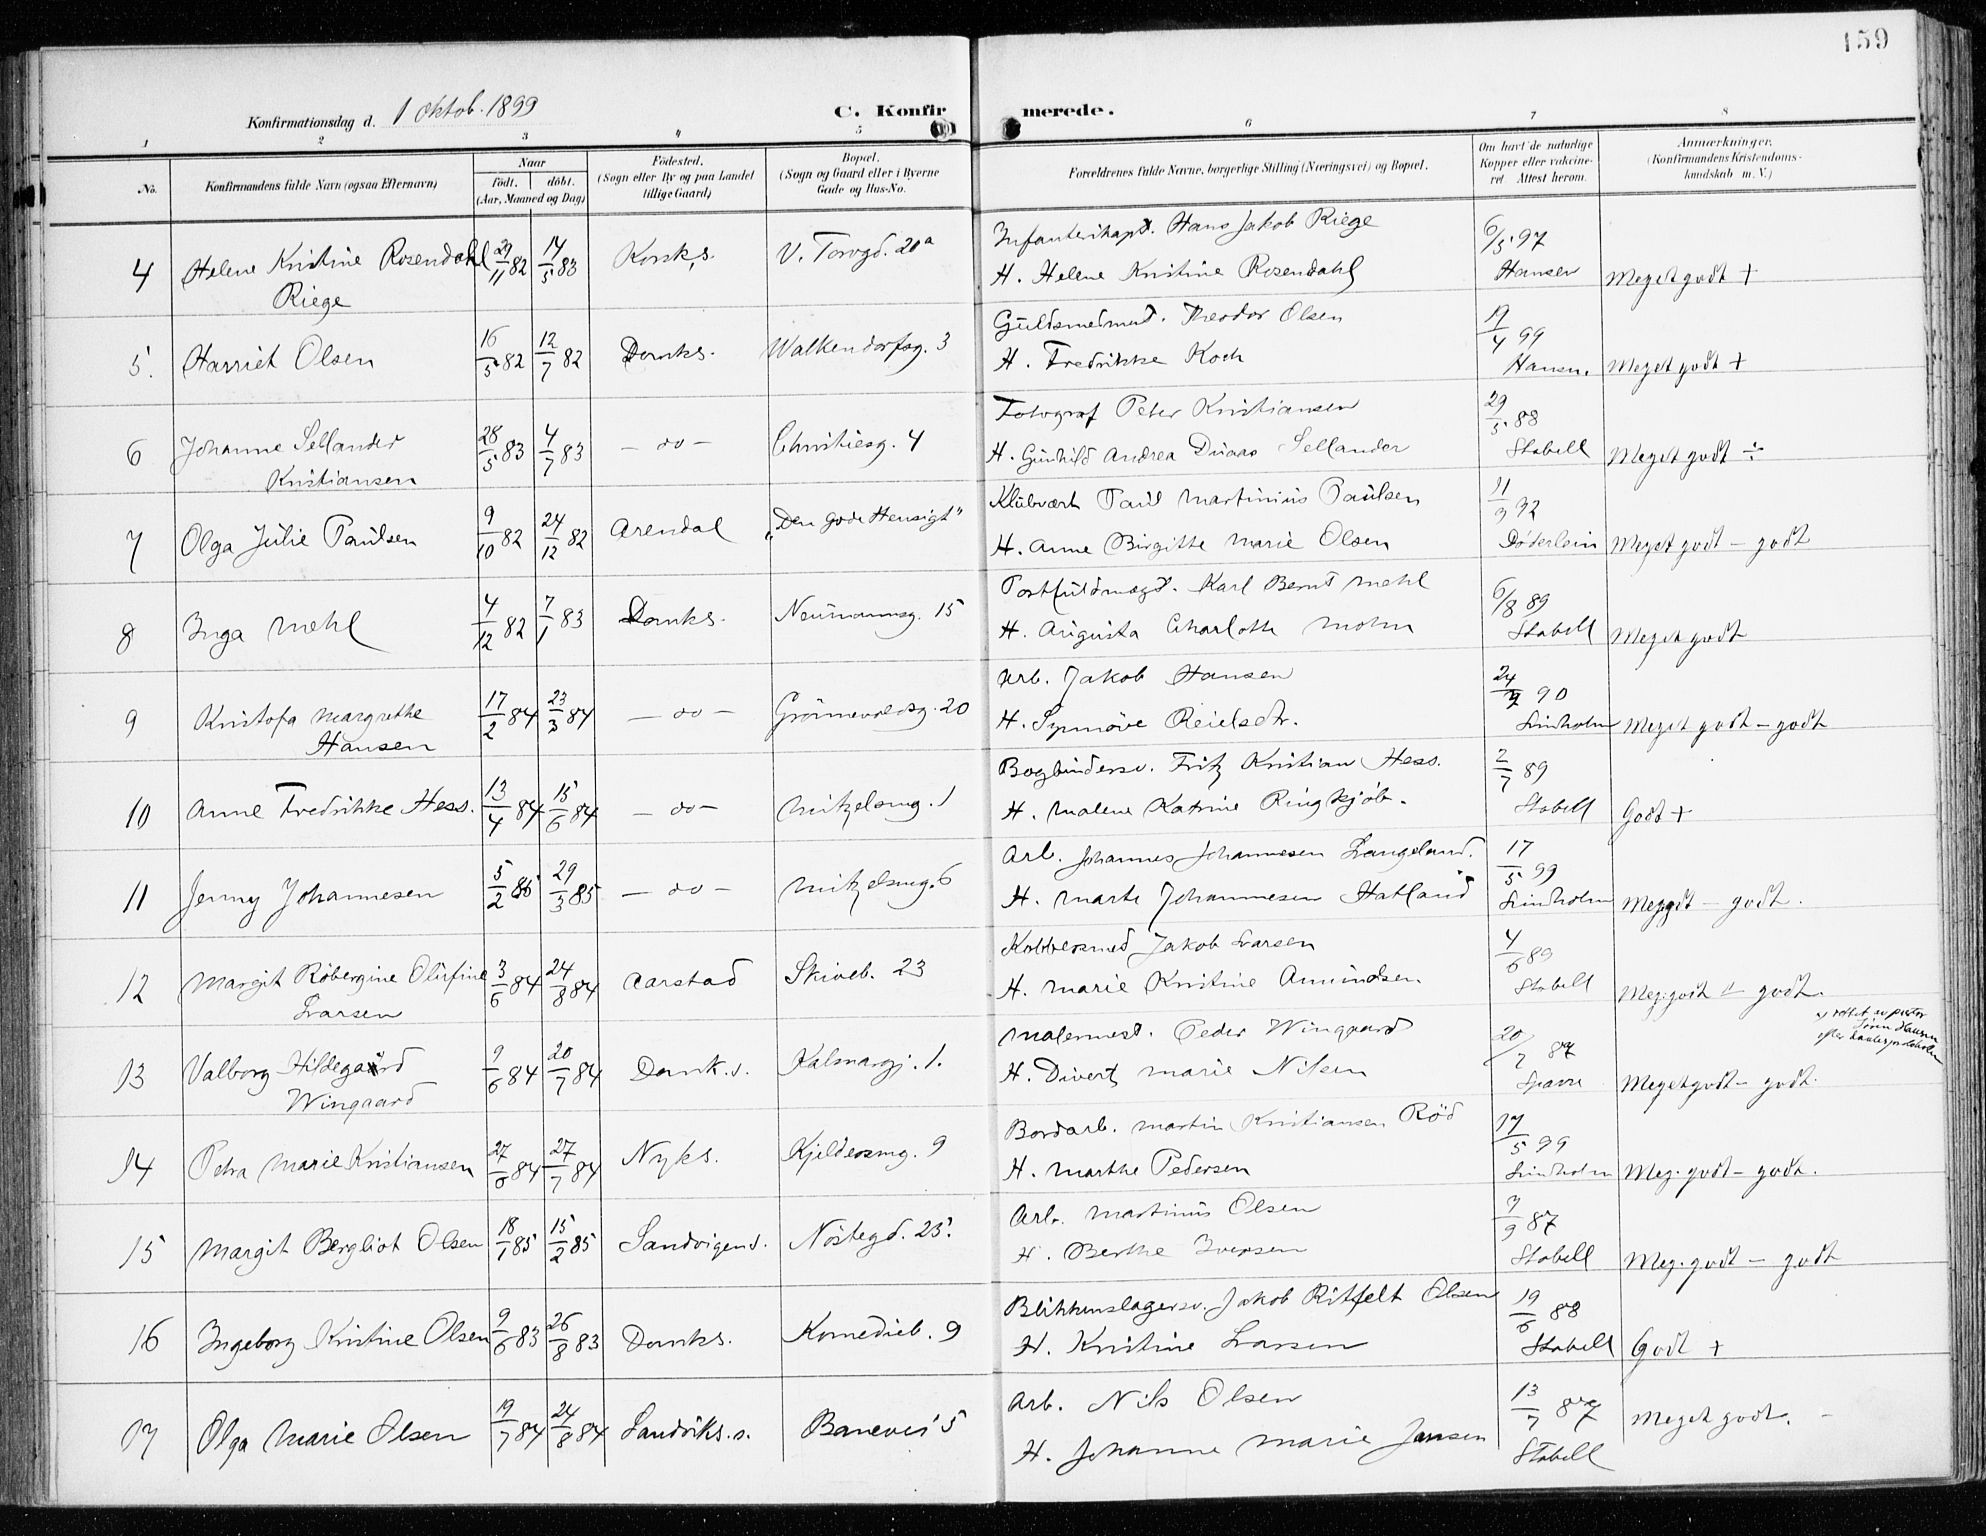 159
Konfirmationsdag d. 1 Oktob. 1899
C. Konfirmerede.
1 2 3 4 5 6 7 8
No.
Konfirmandens fulde Navn (ogsaa Efternavn)
Naar
født. døbt.
(Aar, Maaned og Dag)
Födested.
(Sogn eller By og paa Landet
tillige Gaard)
Bopæl.
(Sogn og Gaard eller i Byerne
Gade og Hus-No.
Forældrenes fulde Navne, borgerlige Stilling (Næringsvei) og Bopæl.
Om havt de naturlige
Kopper eller vakcine-
ret. Attest herom.
Anmærkninger.
(Konfirmandens Kristendoms-
kundskab m. V.)
4 Helene Kristine Rosendahl 29/11 82 14/5 83 Korsk.s. V. Torvgd. 20a Infanterikapt. Hans Jakob Riege 6/5 97
Riege H. Helene Kristine Rosendahl Hansen Meget godt +
5. Harriet Olsen 16/5 82 12/7 82 Domks. Walkendorfsg. 3 Guldsmedmest. Theodor Olsen 19/4 99
H. Fredrikke Koch Hansen. Meget godt +
6 Johanne Sellander 28/5 83 4/7 83 — do — Christiesg. 4 Fotograf Peter Kristiansen 29/5 88
Kristiansen H. Gunhild Andrea Duaas Sellander Stabell Meget godt ÷
7 Olga Julie Paulsen 9/10 82 24/12 82 Arendal „Den gode Hensigt" Klubvært Paul Martinius Paulsen 11/3 92
H. Anne Birgitte Marie Olsen Døderlein Meget godt — godt
8 Inga Mehl 4/12 82 7/1 83 Domks. Neumannsg. 15 Postfuldmægt. Karl Bernt Mehl 6/8 89
H. Augusta Charlotte Mohn Stabell Meget godt
9 Kristofa Margrethe 17/2 84 23/3 84 — do — Grönnevoldsg. 20 Arb. Jakob Hansen 90
Hansen H. Synnöve Reielsdtr. Lindholm Meget godt — godt
10 Anne Fredrikke Hess. 13/4 84 15/6 84 — do — Mitzelsmg. 1 Bogbindersv. Fritz Kristian Hess. 2/7 89
H. Malene Katrine Ringkjöb. Stabell Godt +
11 Jenny Johannesen 5/2 85 29/3 85 — do — Mitzelsmg. 6 Arb. Johannes Johannesen Langeland. 17/5 99
H. Marte Johannesen Hatland Lindholm Meg.gdt — godt.
12 Margit Röbergine Olufine 3/6 84 24/8 84 Aarstad Skiveb. 23 Kobbersmed Jakob Larsen 4/6 89
Larsen H. Marie Kristine Amundsen Stabell Meg. godt — godt.
13 Valborg Hildegaard 9/6 84 20/7 84 Domk.s. Kalmargj. 1. Malermest. Peder Wingaard 87
Wingaard H. Divert Marie Nilsen Meget godt — godt.
14 Petra Marie Kristiansen 27/6 84 27/7 84 Nyks. Kjeldersmg. 9 Bordarb. Martin Kristiansen Röd 17/5 99
H. Marthe Pedersen Lindholm Meg. godt — godt.
15 Margit Bergliot Olsen 18/1 85 15/2 85 Sandvigens. Nöstegd. 25. Arb. Martinius Olsen 7/9 87
H. Berthe Iversen Stabell Meg. godt — godt
16 Ingeborg Kristine Olsen 9/6 83 26/8 83 Domks. Komedieb. 9 Blikkenslagersv. Jakob Ritfelt Olsen 19/6 88
H. Kristine Larsen Stabell Godt +
17 Olga Marie Olsen 19/7 84 24/8 84 Sandviks.s. Banevei 5 Arb. Nils Olsen 13/7 87
H. Johanne Marie Jansen Stabell Meget godt. —